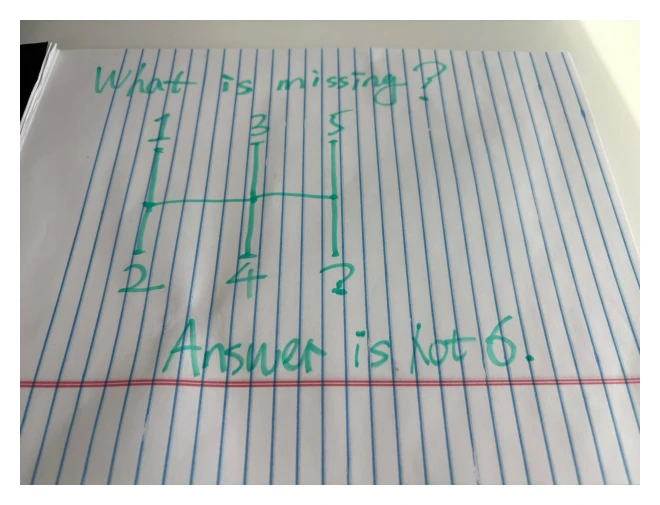 What is missing?
1 3 5
2 4 ?
Answer is Not 6.